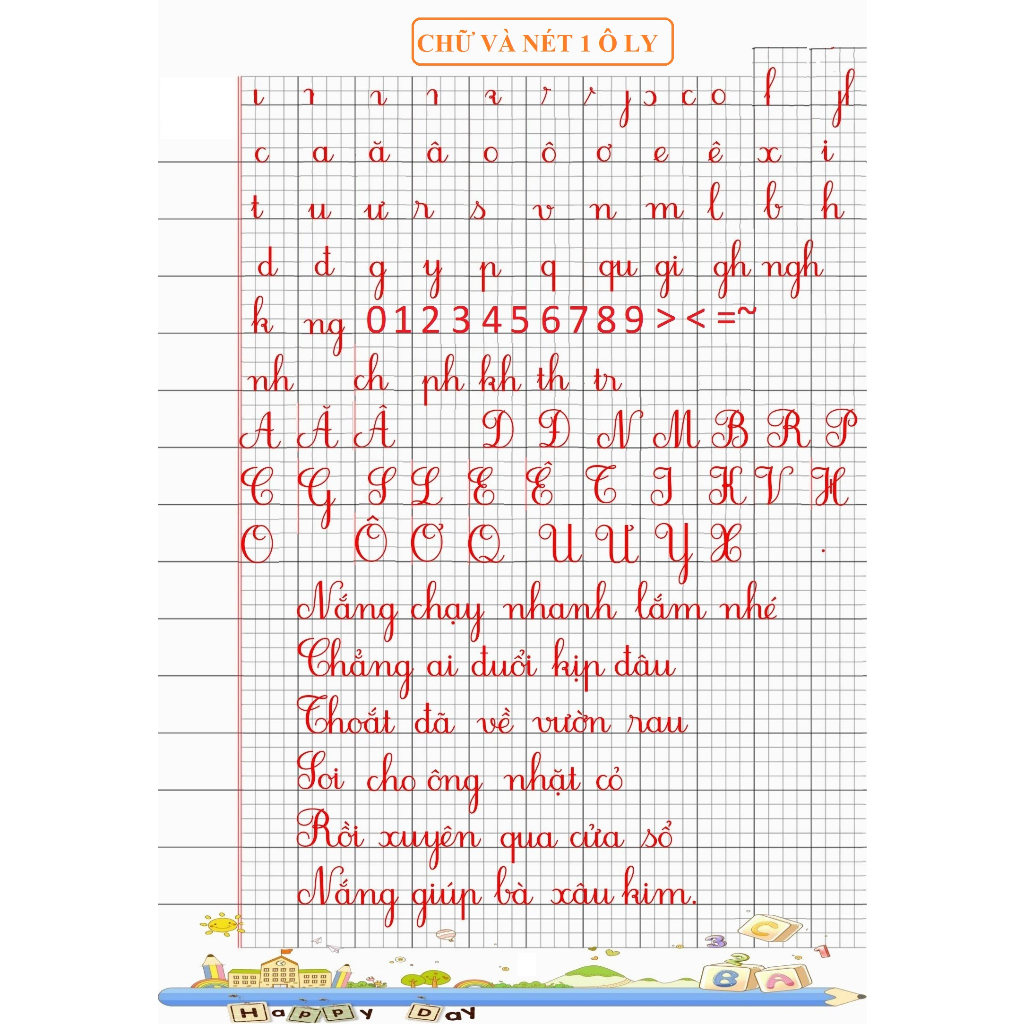 CHỮ VÀ NÉT 1 Ô LY
c a ă â o ô ơ e ê x i
t u ư r s v n m l b h
d đ g y p q qu gi gh ngh
k ng 0 1 2 3 4 5 6 7 8 9 > < = ~
nh ch ph kh th tr
A Ă Â D Đ N M B R P
C G S L E Ê T I K V H
O Ô Ơ Q U Ư Y X .
Nắng chạy nhanh lắm nhé
Chẳng ai đuổi kịp đâu
Thoắt đã về vườn rau
Soi cho ông nhặt cỏ
Rồi xuyên qua cửa sổ
Nắng giúp bà xâu kim.
C
3 2 1
B A
Happy Day